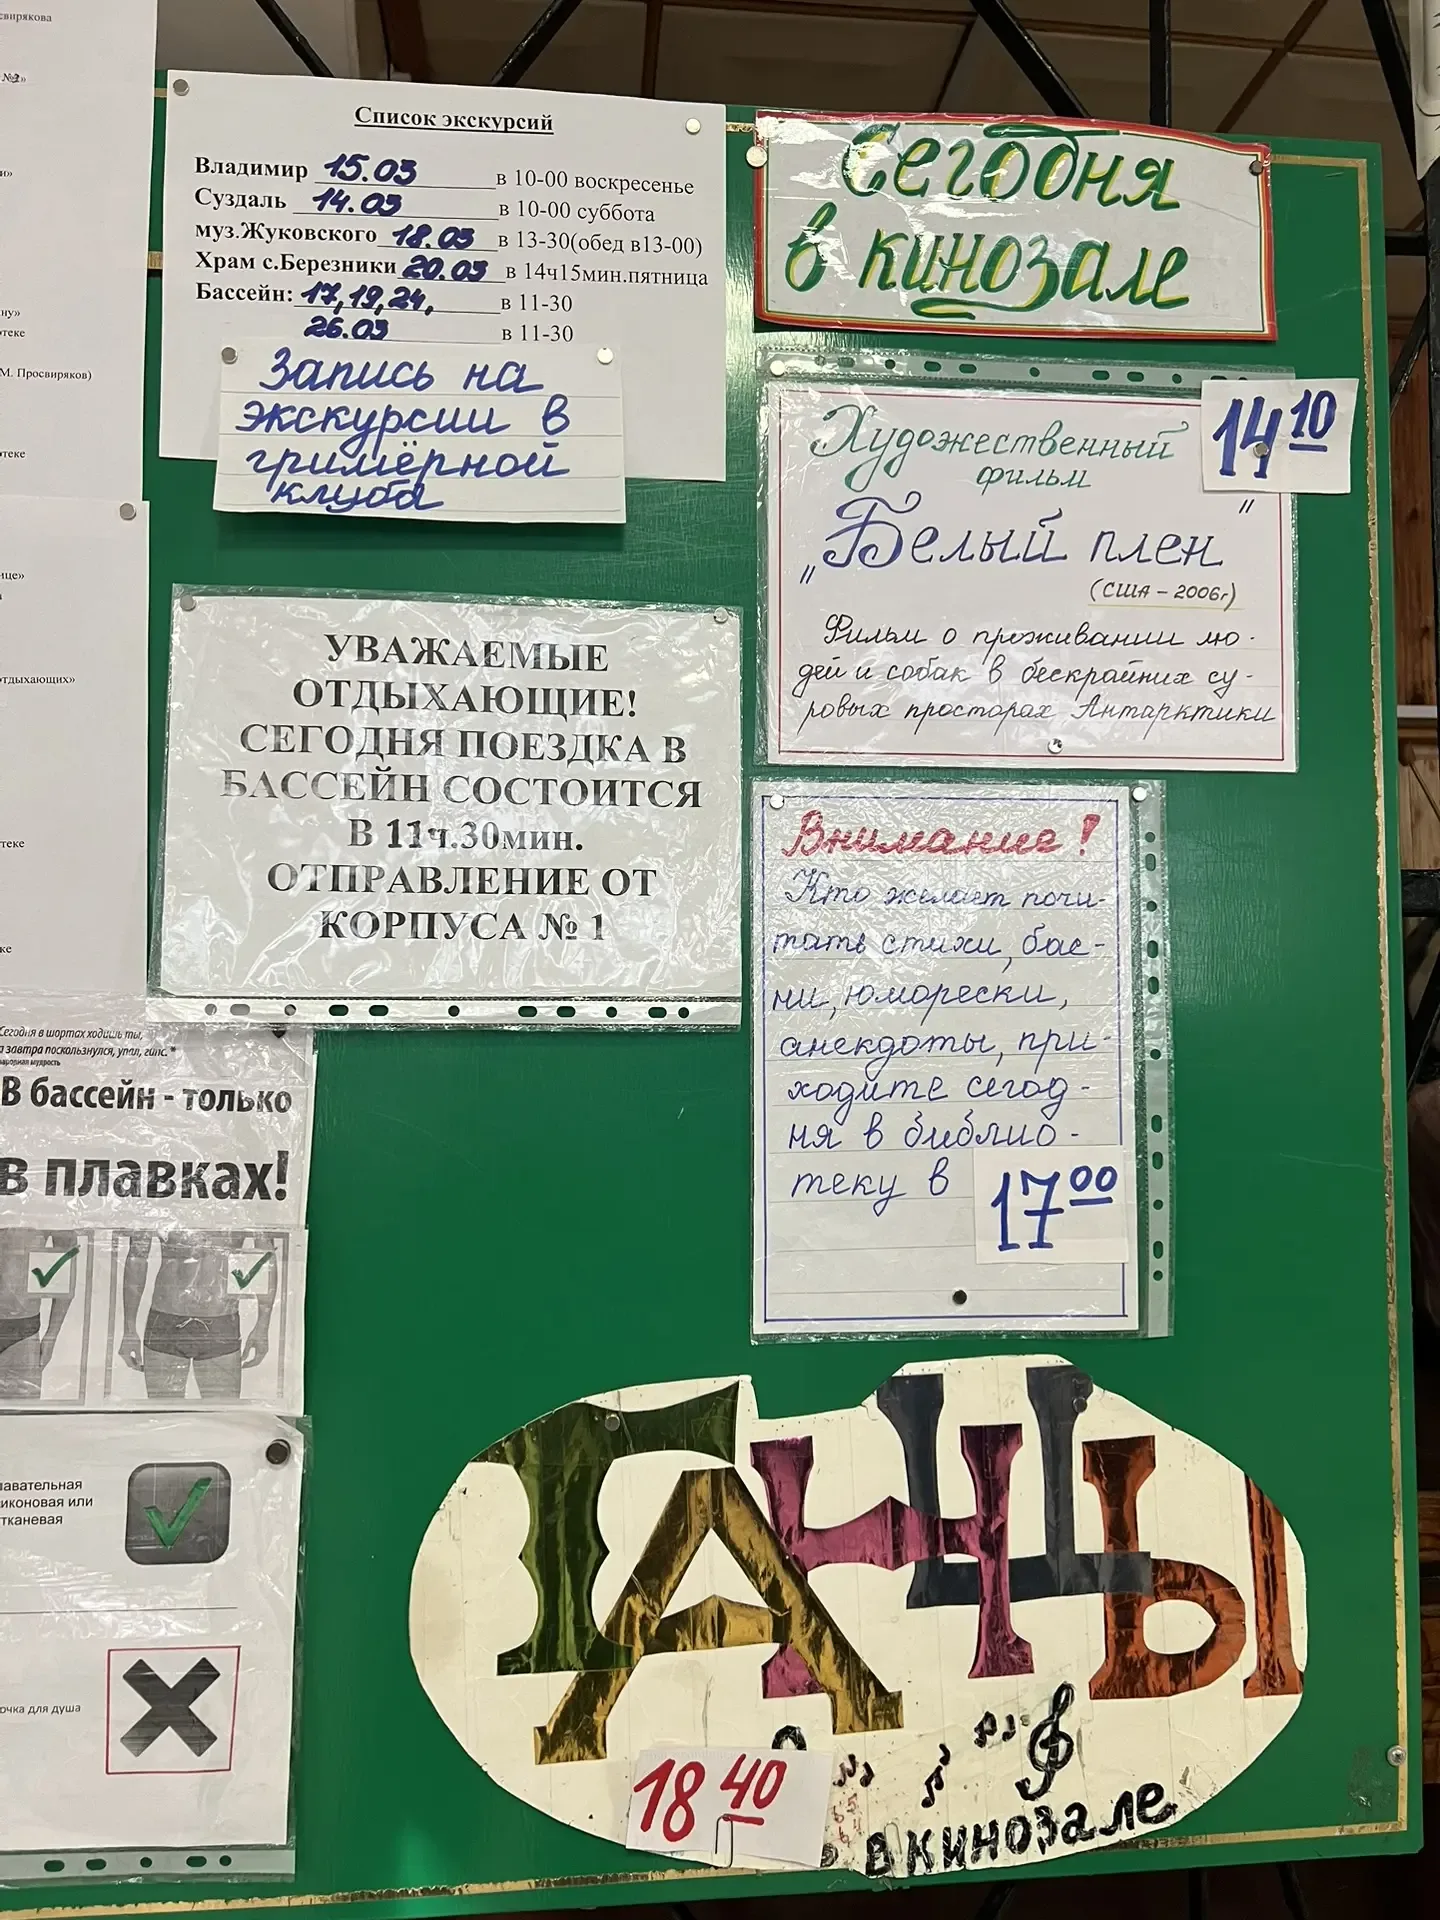 свирякова
№2»
М. Просвиряков)
отдыхающих»
Список экскурсий
Владимир 15.03 в 10-00 воскресенье
Суздаль 14.03 в 10-00 суббота
муз.Жуковского 18.03 в 13-30(обед в13-00)
Храм с.Березники 20.03 в 14ч15мин.пятница
Бассейн: 17,19,24, в 11-30
26.03 в 11-30
Запись на
экскурсии в
гримёрной
клуба
УВАЖАЕМЫЕ
ОТДЫХАЮЩИЕ!
СЕГОДНЯ ПОЕЗДКА В
БАССЕЙН СОСТОИТСЯ
В 11ч.30мин.
ОТПРАВЛЕНИЕ ОТ
КОРПУСА № 1
Сегодня в шортах ходишь ты,
а завтра поскользнулся, упал, гипс. *
народная мудрость
В бассейн - только
в плавках!
лавательная
иконовая или
тканевая
очка для душа
Сегодня
в кинозале
14 10
Художественный
фильм
„Белый плен"
(США - 2006г)
Фильм о проживании лю-
дей и собак в бескрайних су-
ровых просторах Антарктики
Внимание!
Кто желает почи-
тать стихи, бас-
ни, юморески,
анекдоты, при-
ходите сегод-
ня в библио-
теку в 17 00
ТАНЦЫ
18 40
в кинозале